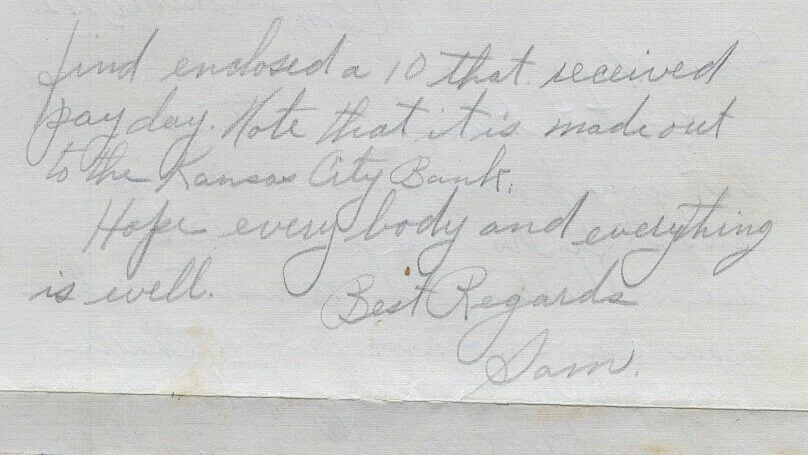 find enclosed a 10 that received
pay day. Note that it is made out
to the Kansas City Bank.
Hope every body and everything
is well.
Best Regards
Sam.